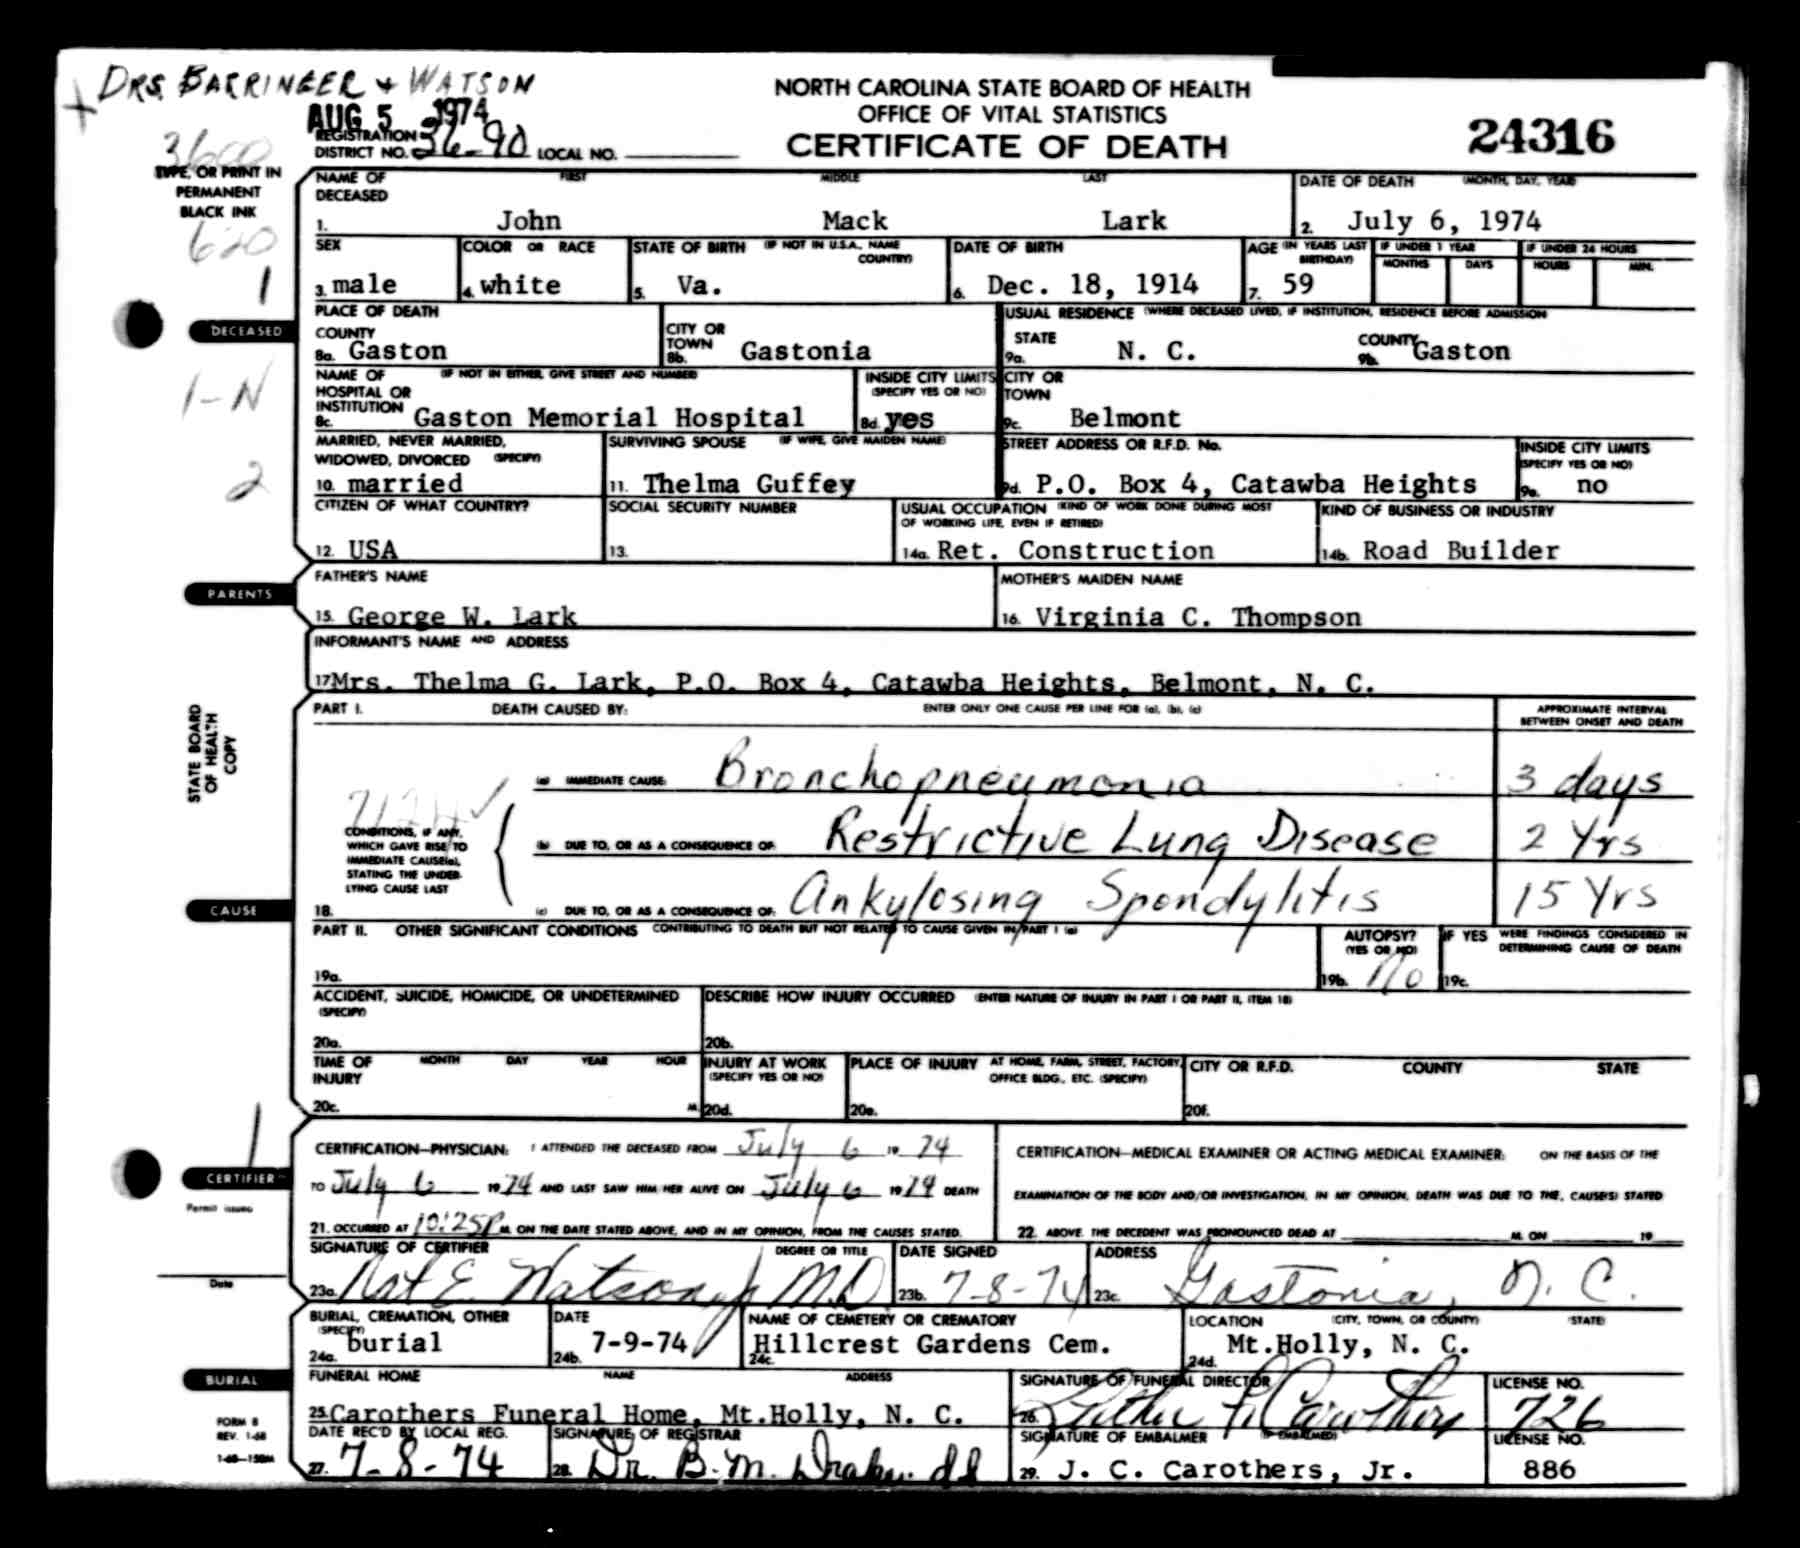 DRS. BARRINGER + WATSON
AUG 5 1974
NORTH CAROLINA STATE BOARD OF HEALTH
OFFICE OF VITAL STATISTICS
CERTIFICATE OF DEATH
24316
REGISTRATION DISTRICT NO. 36-90 LOCAL NO.
3600
TYPE, OR PRINT IN
PERMANENT
BLACK INK
620
1
DECEASED
1-N
2
NAME OF DECEASED FIRST MIDDLE LAST
1. John Mack Lark
DATE OF DEATH (MONTH, DAY, YEAR)
2. July 6, 1974
SEX
3. male
COLOR OR RACE
4. white
STATE OF BIRTH (IF NOT IN U.S.A., NAME COUNTRY)
5. Va.
DATE OF BIRTH
6. Dec. 18, 1914
AGE (IN YEARS LAST BIRTHDAY)
7. 59
IF UNDER 1 YEAR
MONTHS DAYS
IF UNDER 24 HOURS
HOURS MIN.
PLACE OF DEATH
COUNTY
8a. Gaston
CITY OR TOWN
8b. Gastonia
USUAL RESIDENCE (WHERE DECEASED LIVED, IF INSTITUTION, RESIDENCE BEFORE ADMISSION)
STATE
9a. N. C.
COUNTY
9b. Gaston
NAME OF HOSPITAL OR INSTITUTION (IF NOT IN EITHER, GIVE STREET AND NUMBER)
8c. Gaston Memorial Hospital
INSIDE CITY LIMITS (SPECIFY YES OR NO)
8d. yes
CITY OR TOWN
9c. Belmont
MARRIED, NEVER MARRIED, WIDOWED, DIVORCED (SPECIFY)
10. married
SURVIVING SPOUSE (IF WIFE, GIVE MAIDEN NAME)
11. Thelma Guffey
STREET ADDRESS OR R.F.D. No.
9d. P.O. Box 4, Catawba Heights
INSIDE CITY LIMITS (SPECIFY YES OR NO)
9e. no
CITIZEN OF WHAT COUNTRY?
12. USA
SOCIAL SECURITY NUMBER
13.
USUAL OCCUPATION (KIND OF WORK DONE DURING MOST OF WORKING LIFE, EVEN IF RETIRED)
14a. Ret. Construction
KIND OF BUSINESS OR INDUSTRY
14b. Road Builder
PARENTS
FATHER'S NAME
15. George W. Lark
MOTHER'S MAIDEN NAME
16. Virginia C. Thompson
INFORMANT'S NAME AND ADDRESS
17 Mrs. Thelma G. Lark, P.O. Box 4, Catawba Heights, Belmont, N. C.
STATE BOARD
OF HEALTH
COPY
PART I. DEATH CAUSED BY: ENTER ONLY ONE CAUSE PER LINE FOR (a), (b), (c)
APPROXIMATE INTERVAL BETWEEN ONSET AND DEATH
(a) IMMEDIATE CAUSE: Bronchopneumonia 3 days
CONDITIONS, IF ANY,
WHICH GAVE RISE TO
IMMEDIATE CAUSE(a),
STATING THE UNDER-
LYING CAUSE LAST
(b) DUE TO, OR AS A CONSEQUENCE OF: Restrictive Lung Disease 2 Yrs
CAUSE
18. (c) DUE TO, OR AS A CONSEQUENCE OF: Ankylosing Spondylitis 15 Yrs
PART II. OTHER SIGNIFICANT CONDITIONS CONTRIBUTING TO DEATH BUT NOT RELATED TO CAUSE GIVEN IN PART I (a)
19a.
AUTOPSY? (YES OR NO)
19b. No
IF YES WERE FINDINGS CONSIDERED IN DETERMINING CAUSE OF DEATH
19c.
ACCIDENT, SUICIDE, HOMICIDE, OR UNDETERMINED (SPECIFY)
20a.
DESCRIBE HOW INJURY OCCURRED (ENTER NATURE OF INJURY IN PART I OR PART II, ITEM 18)
20b.
TIME OF INJURY MONTH DAY YEAR HOUR
20c. M.
INJURY AT WORK (SPECIFY YES OR NO)
20d.
PLACE OF INJURY AT HOME, FARM, STREET, FACTORY, OFFICE BLDG., ETC. (SPECIFY)
20e.
CITY OR R.F.D. COUNTY STATE
20f.
1
CERTIFIER
Permit issued
Date
CERTIFICATION—PHYSICIAN: I ATTENDED THE DECEASED FROM July 6 19 74
TO July 6 19 74 AND LAST SAW HIM/HER ALIVE ON July 6 19 74 DEATH
21. OCCURRED AT 10:25P M. ON THE DATE STATED ABOVE, AND IN MY OPINION, FROM THE CAUSES STATED.
CERTIFICATION—MEDICAL EXAMINER OR ACTING MEDICAL EXAMINER: ON THE BASIS OF THE
EXAMINATION OF THE BODY AND/OR INVESTIGATION, IN MY OPINION, DEATH WAS DUE TO THE, CAUSE(S) STATED
22. ABOVE. THE DECEDENT WAS PRONOUNCED DEAD AT M. ON 19
SIGNATURE OF CERTIFIER DEGREE OR TITLE
23a. Nat E. Watson, Jr M.D.
DATE SIGNED
23b. 7-8-74
ADDRESS
23c. Gastonia, N. C.
BURIAL, CREMATION, OTHER (SPECIFY)
24a. burial
DATE
24b. 7-9-74
NAME OF CEMETERY OR CREMATORY
24c. Hillcrest Gardens Cem.
LOCATION (CITY, TOWN, OR COUNTY) (STATE)
24d. Mt.Holly, N. C.
BURIAL
FUNERAL HOME NAME ADDRESS
25. Carothers Funeral Home, Mt.Holly, N. C.
SIGNATURE OF FUNERAL DIRECTOR
26. Carothers
LICENSE NO.
726
FORM 8
REV. 1-68
1-68—150M
DATE REC'D BY LOCAL REG.
27. 7-8-74
SIGNATURE OF REGISTRAR
28. Dr. B. M. Drake
SIGNATURE OF EMBALMER (IF EMBALMED)
29. J. C. Carothers, Jr.
LICENSE NO.
886